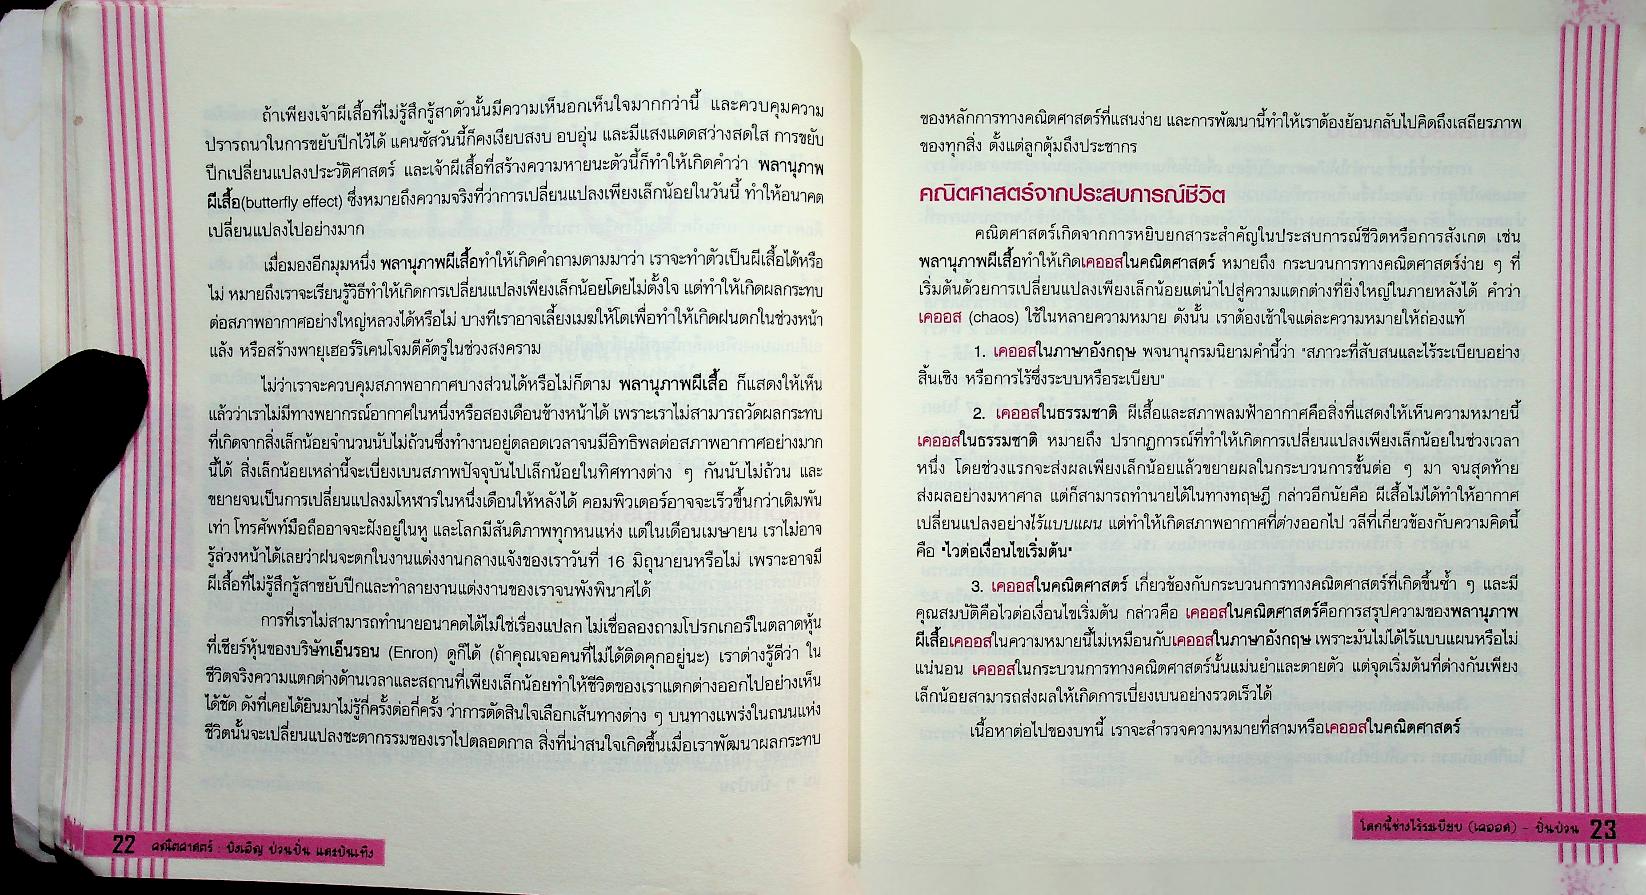 ถ้าเพียงเจ้าผีเสื้อที่ไม่รู้สึกรู้สาตัวนั้นมีความเห็นอกเห็นใจมากกว่านี้ และควบคุมความ
ปรารถนาในการขยับปีกไว้ได้ แคนซัสวันนี้ก็คงเงียบสงบ อบอุ่น และมีแสงแดดสว่างสดใส การขยับ
ปีกเปลี่ยนแปลงประวัติศาสตร์ และเจ้าผีเสื้อที่สร้างความหายนะตัวนี้ก็ทำให้เกิดคำว่า พลานุภาพ
ผีเสื้อ(butterfly effect) ซึ่งหมายถึงความจริงที่ว่าการเปลี่ยนแปลงเพียงเล็กน้อยในวันนี้ ทำให้อนาคต
เปลี่ยนแปลงไปอย่างมาก
เมื่อมองอีกมุมหนึ่ง พลานุภาพผีเสื้อทำให้เกิดคำถามตามมาว่า เราจะทำตัวเป็นผีเสื้อได้หรือ
ไม่ หมายถึงเราจะเรียนรู้วิธีทำให้เกิดการเปลี่ยนแปลงเพียงเล็กน้อยโดยไม่ตั้งใจ แต่ทำให้เกิดผลกระทบ
ต่อสภาพอากาศอย่างใหญ่หลวงได้หรือไม่ บางทีเราอาจเลี้ยงเมฆให้โตเพื่อทำให้เกิดฝนตกในช่วงหน้า
แล้ง หรือสร้างพายุเฮอร์ริเคนโจมตีศัตรูในช่วงสงคราม
ไม่ว่าเราจะควบคุมสภาพอากาศบางส่วนได้หรือไม่ก็ตาม พลานุภาพผีเสื้อ ก็แสดงให้เห็น
แล้วว่าเราไม่มีทางพยากรณ์อากาศในหนึ่งหรือสองเดือนข้างหน้าได้ เพราะเราไม่สามารถวัดผลกระทบ
ที่เกิดจากสิ่งเล็กน้อยจำนวนนับไม่ถ้วนซึ่งทำงานอยู่ตลอดเวลาจนมีอิทธิพลต่อสภาพอากาศอย่างมาก
นี้ได้ สิ่งเล็กน้อยเหล่านี้จะเบี่ยงเบนสภาพปัจจุบันไปเล็กน้อยในทิศทางต่าง ๆ กันนับไม่ถ้วน และ
ขยายจนเป็นการเปลี่ยนแปลงมโหฬารในหนึ่งเดือนให้หลังได้ คอมพิวเตอร์อาจจะเร็วขึ้นกว่าเดิมพัน
เท่า โทรศัพท์มือถืออาจจะฝังอยู่ในหู และโลกมีสันติภาพทุกหนแห่ง แต่ในเดือนเมษายน เราไม่อาจ
รู้ล่วงหน้าได้เลยว่าฝนจะตกในงานแต่งงานกลางแจ้งของเราวันที่ 16 มิถุนายนหรือไม่ เพราะอาจมี
ผีเสื้อที่ไม่รู้สึกรู้สาขยับปีกและทำลายงานแต่งงานของเราจนพังพินาศได้
การที่เราไม่สามารถทำนายอนาคตได้ไม่ใช่เรื่องแปลก ไม่เชื่อลองถามโบรกเกอร์ในตลาดหุ้น
ที่เชียร์หุ้นของบริษัทเอ็นรอน (Enron) ดูก็ได้ (ถ้าคุณเจอคนที่ไม่ได้ติดคุกอยู่นะ) เราต่างรู้ดีว่า ใน
ชีวิตจริงความแตกต่างด้านเวลาและสถานที่เพียงเล็กน้อยทำให้ชีวิตของเราแตกต่างออกไปอย่างเห็น
ได้ชัด ดังที่เคยได้ยินมาไม่รู้กี่ครั้งต่อกี่ครั้ง ว่าการตัดสินใจเลือกเส้นทางต่าง ๆ บนทางแพร่งในถนนแห่ง
ชีวิตนั้นจะเปลี่ยนแปลงชะตากรรมของเราไปตลอดกาล สิ่งที่น่าสนใจเกิดขึ้นเมื่อเราพัฒนาผลกระทบ
22 คณิตศาสตร์ : บังเอิญ ป่วนปั่น และบันเทิง
ของหลักการทางคณิตศาสตร์ที่แสนง่าย และการพัฒนานี้ทำให้เราต้องย้อนกลับไปคิดถึงเสถียรภาพ
ของทุกสิ่ง ตั้งแต่ลูกตุ้มถึงประชากร
คณิตศาสตร์จากประสบการณ์ชีวิต
คณิตศาสตร์เกิดจากการหยิบยกสาระสำคัญในประสบการณ์ชีวิตหรือการสังเกต เช่น
พลานุภาพผีเสื้อทำให้เกิดเคออสในคณิตศาสตร์ หมายถึง กระบวนการทางคณิตศาสตร์ง่าย ๆ ที่
เริ่มต้นด้วยการเปลี่ยนแปลงเพียงเล็กน้อยแต่นำไปสู่ความแตกต่างที่ยิ่งใหญ่ในภายหลังได้ คำว่า
เคออส (chaos) ใช้ในหลายความหมาย ดังนั้น เราต้องเข้าใจแต่ละความหมายให้ถ่องแท้
1. เคออสในภาษาอังกฤษ พจนานุกรมนิยามคำนี้ว่า "สภาวะที่สับสนและไร้ระเบียบอย่าง
สิ้นเชิง หรือการไร้ซึ่งระบบหรือระเบียบ"
2. เคออสในธรรมชาติ ผีเสื้อและสภาพลมฟ้าอากาศคือสิ่งที่แสดงให้เห็นความหมายนี้
เคออสในธรรมชาติ หมายถึง ปรากฏการณ์ที่ทำให้เกิดการเปลี่ยนแปลงเพียงเล็กน้อยในช่วงเวลา
หนึ่ง โดยช่วงแรกจะส่งผลเพียงเล็กน้อยแล้วขยายผลในกระบวนการขั้นต่อ ๆ มา จนสุดท้าย
ส่งผลอย่างมหาศาล แต่ก็สามารถทำนายได้ในทางทฤษฎี กล่าวอีกนัยคือ ผีเสื้อไม่ได้ทำให้อากาศ
เปลี่ยนแปลงอย่างไร้แบบแผน แต่ทำให้เกิดสภาพอากาศที่ต่างออกไป วลีที่เกี่ยวข้องกับความคิดนี้
คือ "ไวต่อเงื่อนไขเริ่มต้น"
3. เคออสในคณิตศาสตร์ เกี่ยวข้องกับกระบวนการทางคณิตศาสตร์ที่เกิดขึ้นซ้ำ ๆ และมี
คุณสมบัติคือไวต่อเงื่อนไขเริ่มต้น กล่าวคือ เคออสในคณิตศาสตร์คือการสรุปความของพลานุภาพ
ผีเสื้อเคออสในความหมายนี้ไม่เหมือนกับเคออสในภาษาอังกฤษ เพราะมันไม่ได้ไร้แบบแผนหรือไม่
แน่นอน เคออสในกระบวนการทางคณิตศาสตร์นั้นแม่นยำและตายตัว แต่จุดเริ่มต้นที่ต่างกันเพียง
เล็กน้อยสามารถส่งผลให้เกิดการเบี่ยงเบนอย่างรวดเร็วได้
เนื้อหาต่อไปของบทนี้ เราจะสำรวจความหมายที่สามหรือเคออสในคณิตศาสตร์
โลกนี้ช่างไร้ระเบียบ (เคออส) - ปั่นป่วน 23